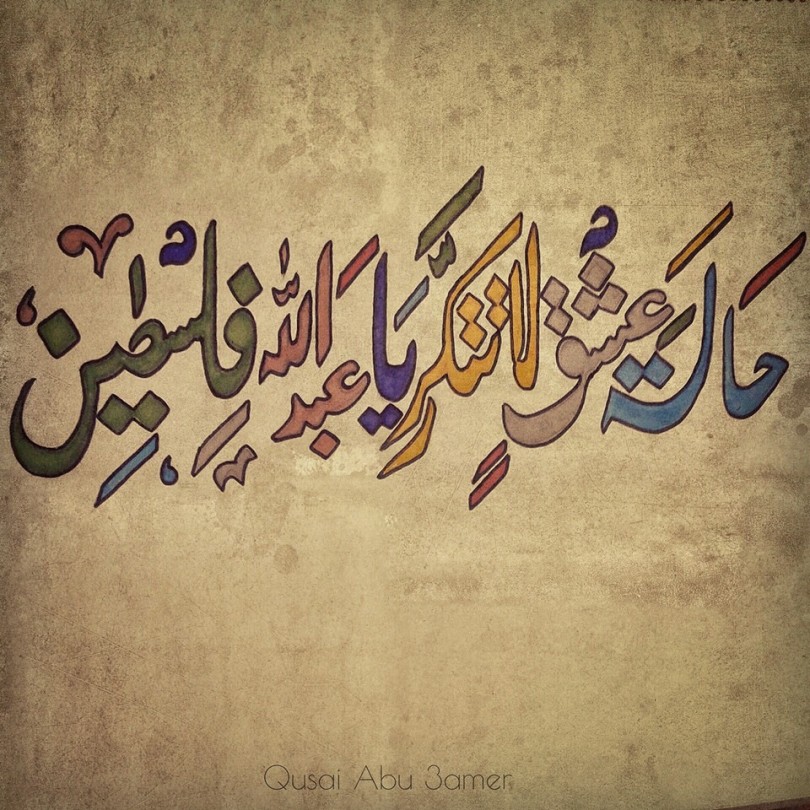 حالة عشق لا تتكرر يا عبد الله فلسطين
Qusai Abu 3amer